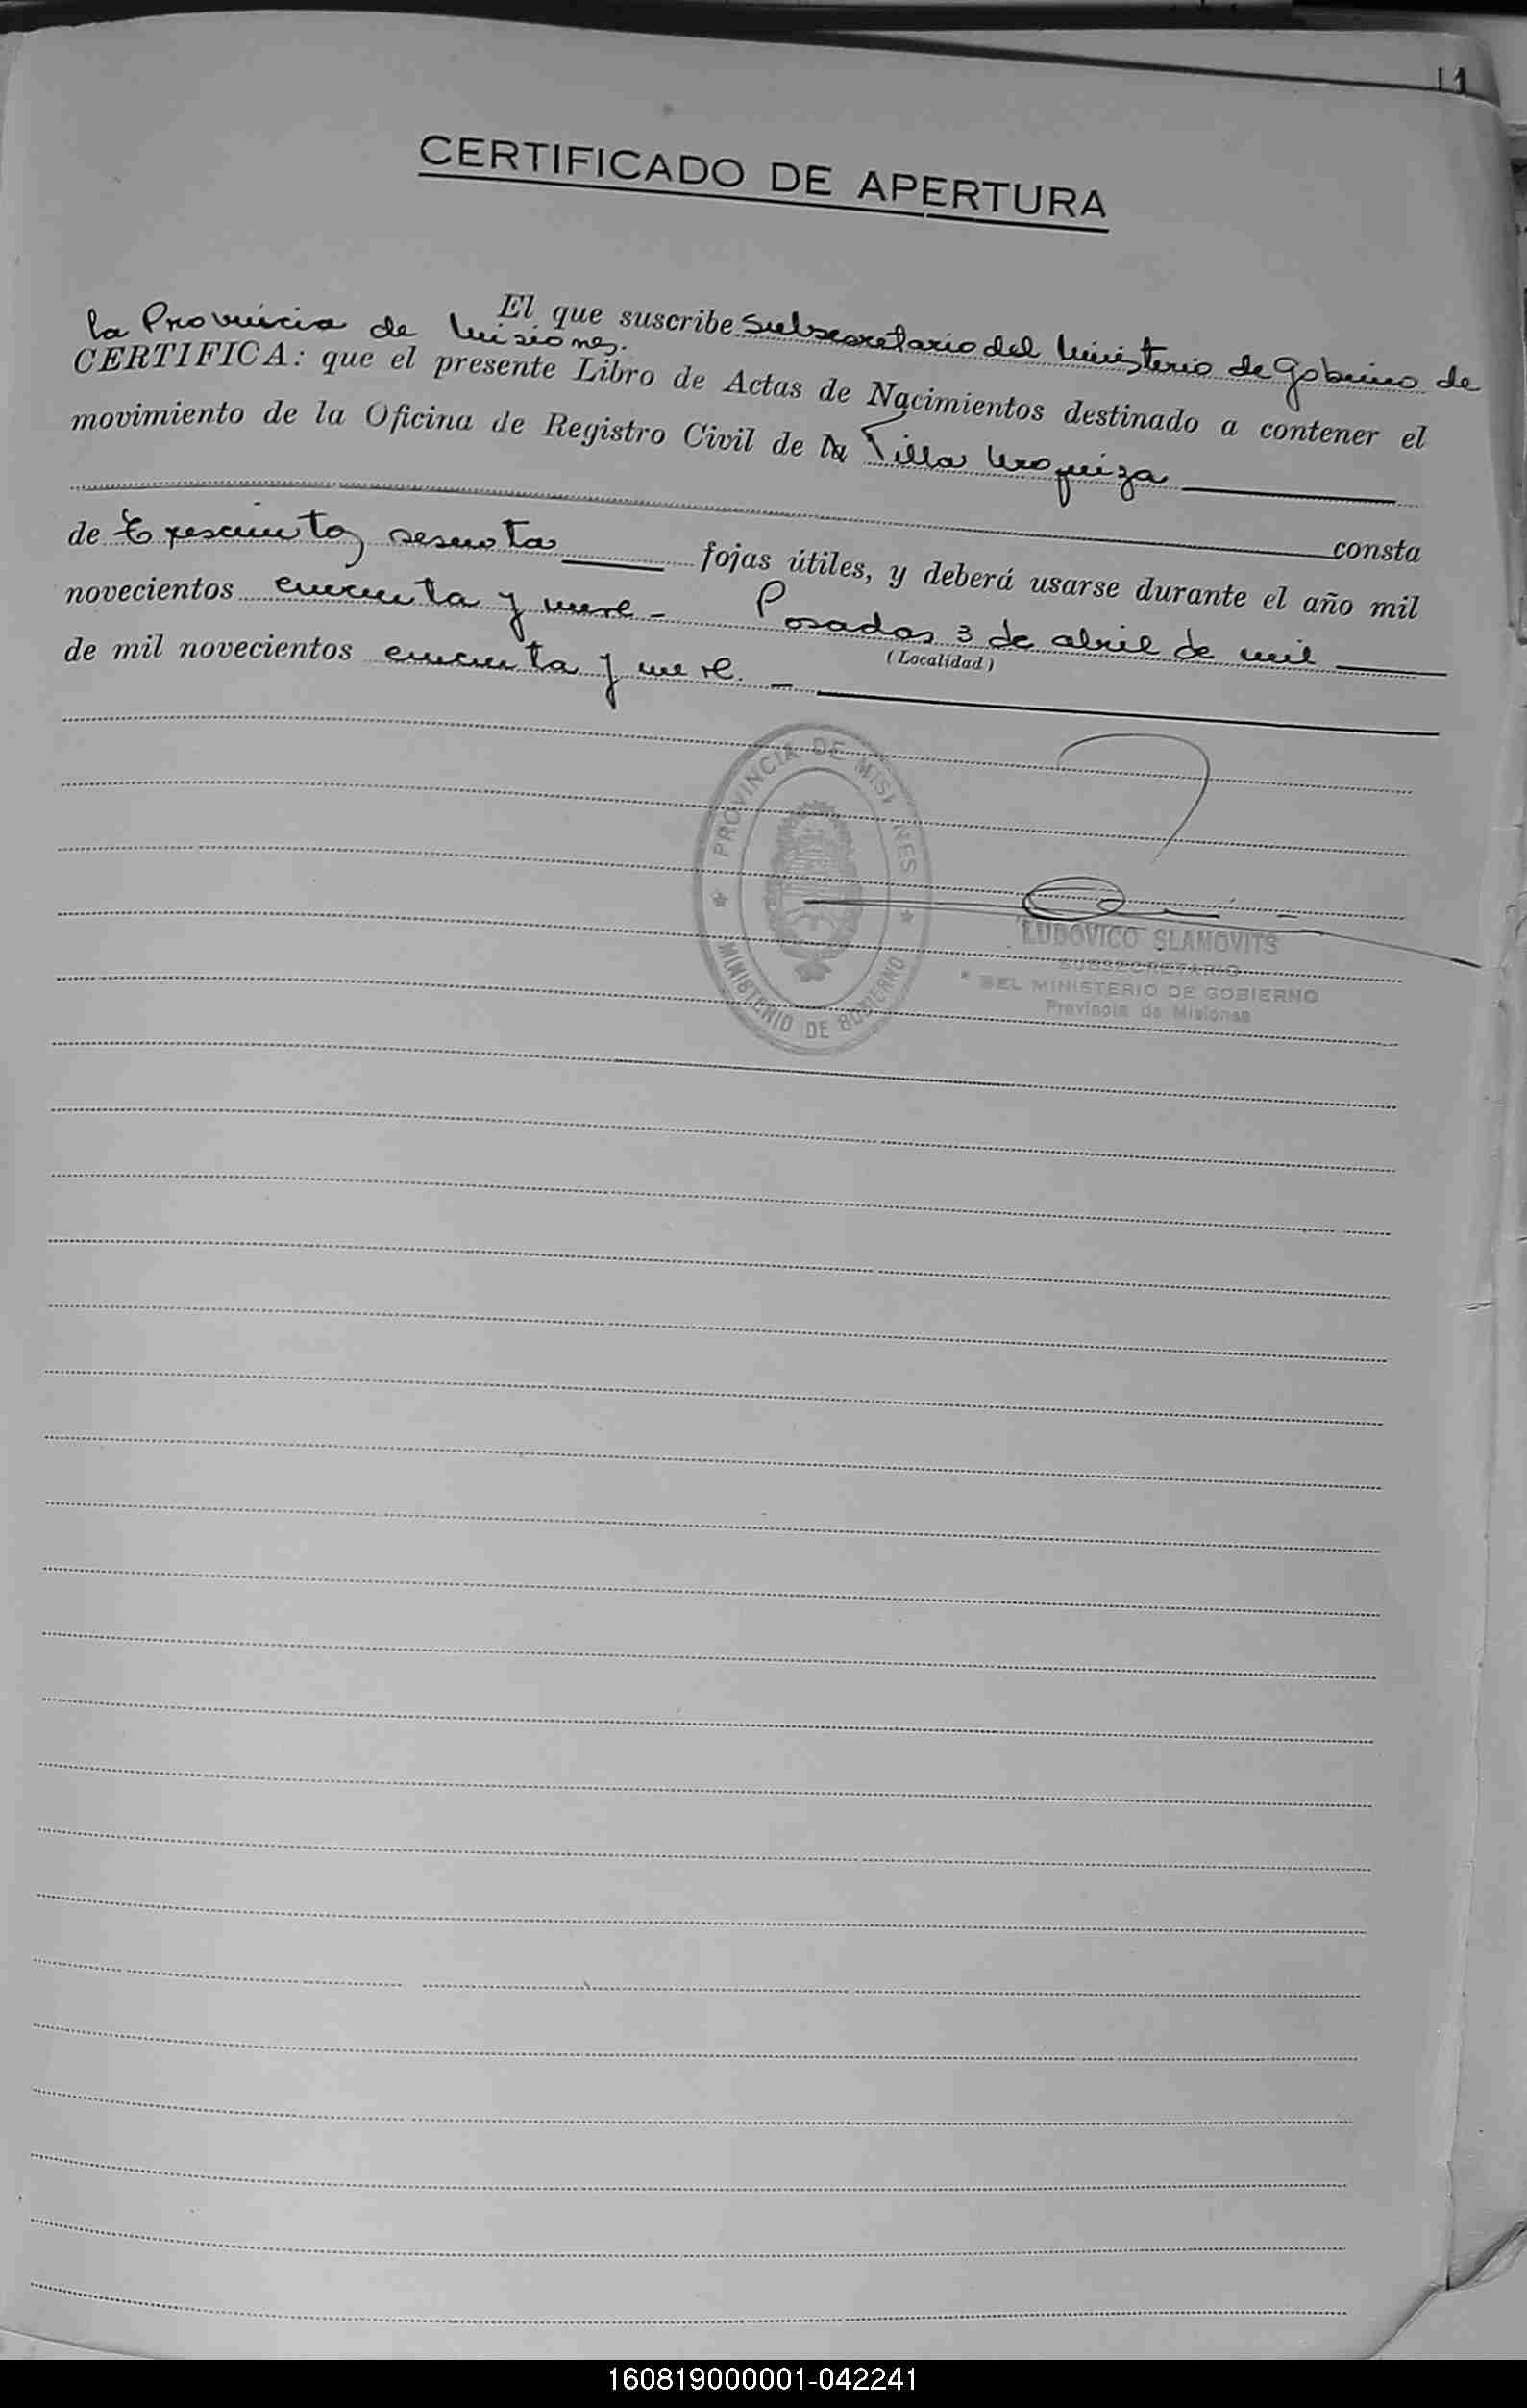 11
CERTIFICADO DE APERTURA
El que suscribe Subsecretario del Ministerio de Gobierno de
la Provincia de Misiones.
CERTIFICA: que el presente Libro de Actas de Nacimientos destinado a contener el
movimiento de la Oficina de Registro Civil de la Villa Urquiza
consta
de trescientos sesenta fojas útiles, y deberá usarse durante el año mil
novecientos cincuenta y nueve - Posadas 3 de abril de mil
(Localidad)
de mil novecientos cincuenta y nueve. -
PROVINCIA DE MISI NES
MINISTERIO DE GOBIERNO
LUDOVICO SLAMOVITS
SUBSECRETARIO
DEL MINISTERIO DE GOBIERNO
Provincia de Misiones
160819000001-042241